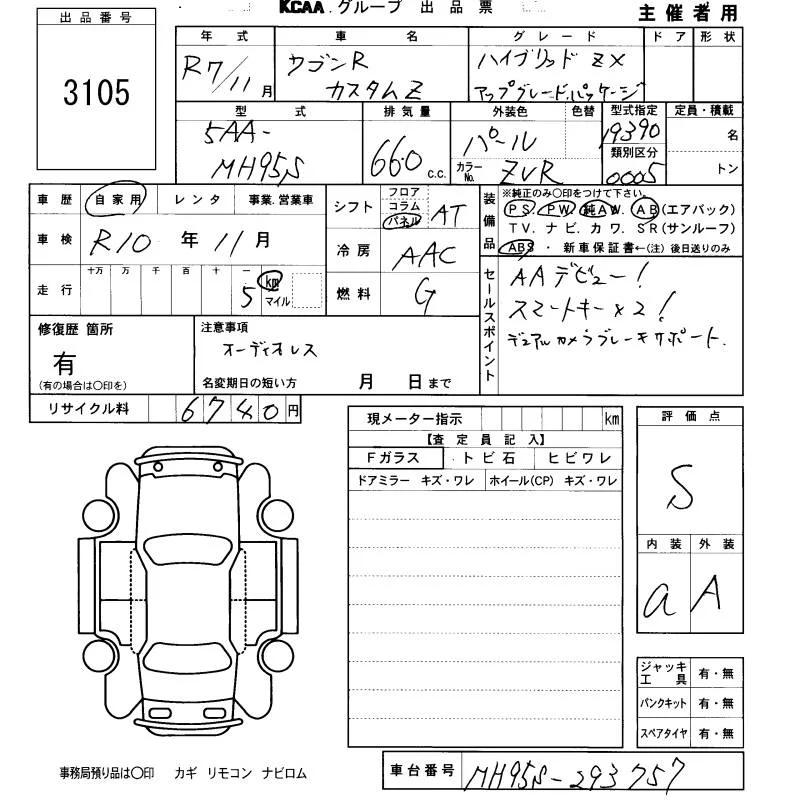 KCAA.グループ 出品票
主催者用
出品番号
3105
年式 車名 グレード ドア 形状
R7/11月 ワゴンR カスタムZ ハイブリッド ZX アップグレードパッケージ
型式 排気量 外装色 色替 型式指定 定員・積載
5AA-MH95S 660 c.c. パール 19390 名
カラーNo. ZVR 類別区分 0005 トン
車歴 自家用 レンタ 事業.営業車
シフト フロア コラム パネル AT
装備品 ※純正のみ〇印をつけて下さい。
PS. PW. 純AW. AB(エアバック)
TV. ナビ. カワ. SR(サンルーフ)
ABS ・ 新車保証書←(注) 後日送りのみ
車検 R10 年 11月
冷房 AAC
走行 十万 万 千 百 十 一
5 km マイル
燃料 G
セールスポイント
AAデビュー!
スマートキー×2!
デュアルカメラブレーキサポート.
修復歴 箇所
有
(有の場合は〇印を)
注意事項
オーディオレス
名変期日の短い方 月 日まで
リサイクル料 6740円
現メーター指示 km
【査定員記入】
Fガラス トビ石 ヒビワレ
ドアミラー キズ・ワレ ホイール(CP) キズ・ワレ
評価点
S
内装 外装
a A
ジャッキ工具 有・無
パンクキット 有・無
スペアタイヤ 有・無
事務局預り品は〇印 カギ リモコン ナビロム
車台番号 MH95S-293757